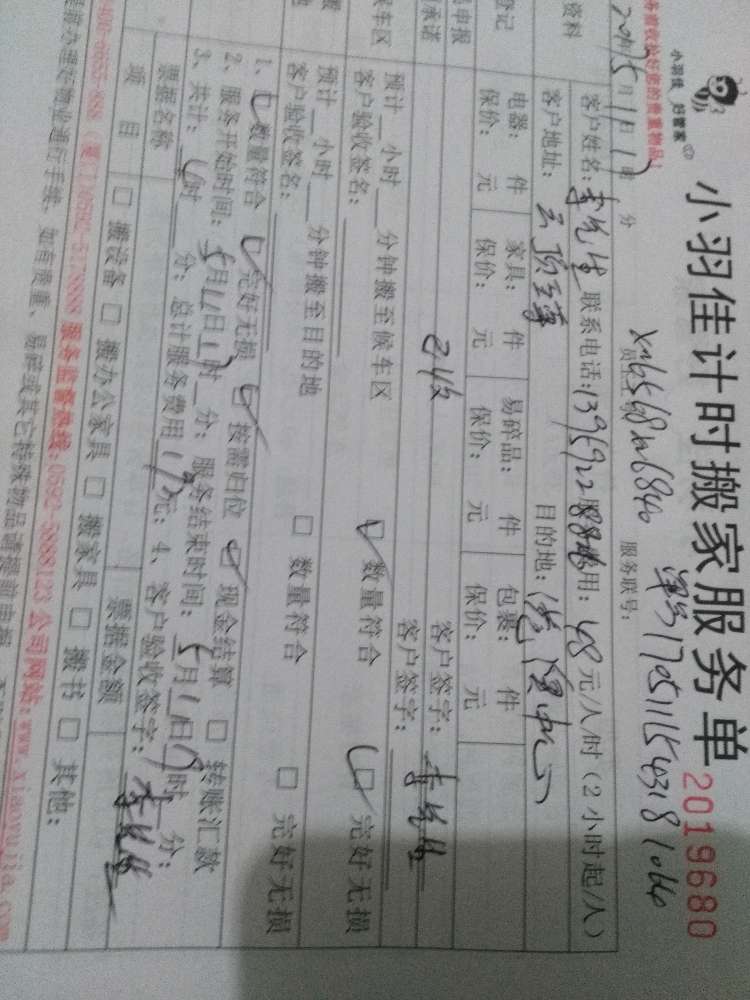 小羽佳 好管家
小羽佳计时搬家服务单 2019680
务必收拾好您的贵重物品!
XM6568 M6840 单号170511154318 1040
服务联号:
5月11日 时 分
资料
客户姓名: 李先生 联系电话: 费用: 48 元/人/时(2小时起/人)
客户地址: 目的地:
登记
电器: 件 家具: 件 易碎品: 件 包裹: 件
保价: 元 保价: 元 保价: 元 保价: 元
申报
承诺
客户签字: 李先生
候车区
预计__小时__分钟搬至候车区 数量符合 完好无损
客户验收签名: 客户签字:
预计__小时__分钟搬至目的地 数量符合 完好无损
客户验收签名:
1、 数量符合 完好无损 按需归位 现金结算 转账汇款
2、服务开始时间: 5月11日 时 分; 服务结束时间: 5月11日 时 分;
3、共计: 时 分; 总计服务费用 元; 4、客户验收签字: 李先生
票据名称 票据金额
项目 搬设备 搬办公家具 搬家具 搬书 其他:
(厦门)0592-5178888 服务监督热线:0592-5888123 公司网站:www.xiaoyujia.com
提前办理好物业进行手续,如有贵重、易碎或其它特殊物品请提前申报